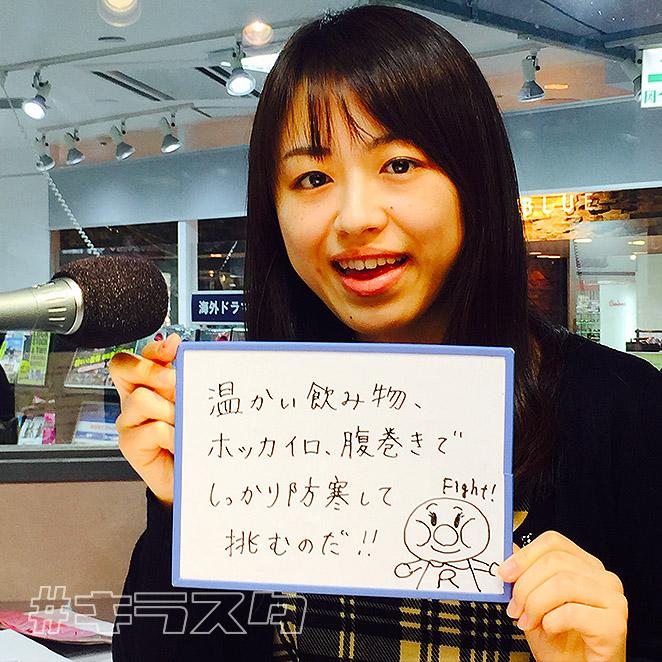 BLUE
海外ドラマ
温かい飲み物、
ホッカイロ、腹巻きで
しっかり防寒して
挑むのだ!!
Fight!
R
#キラスタ